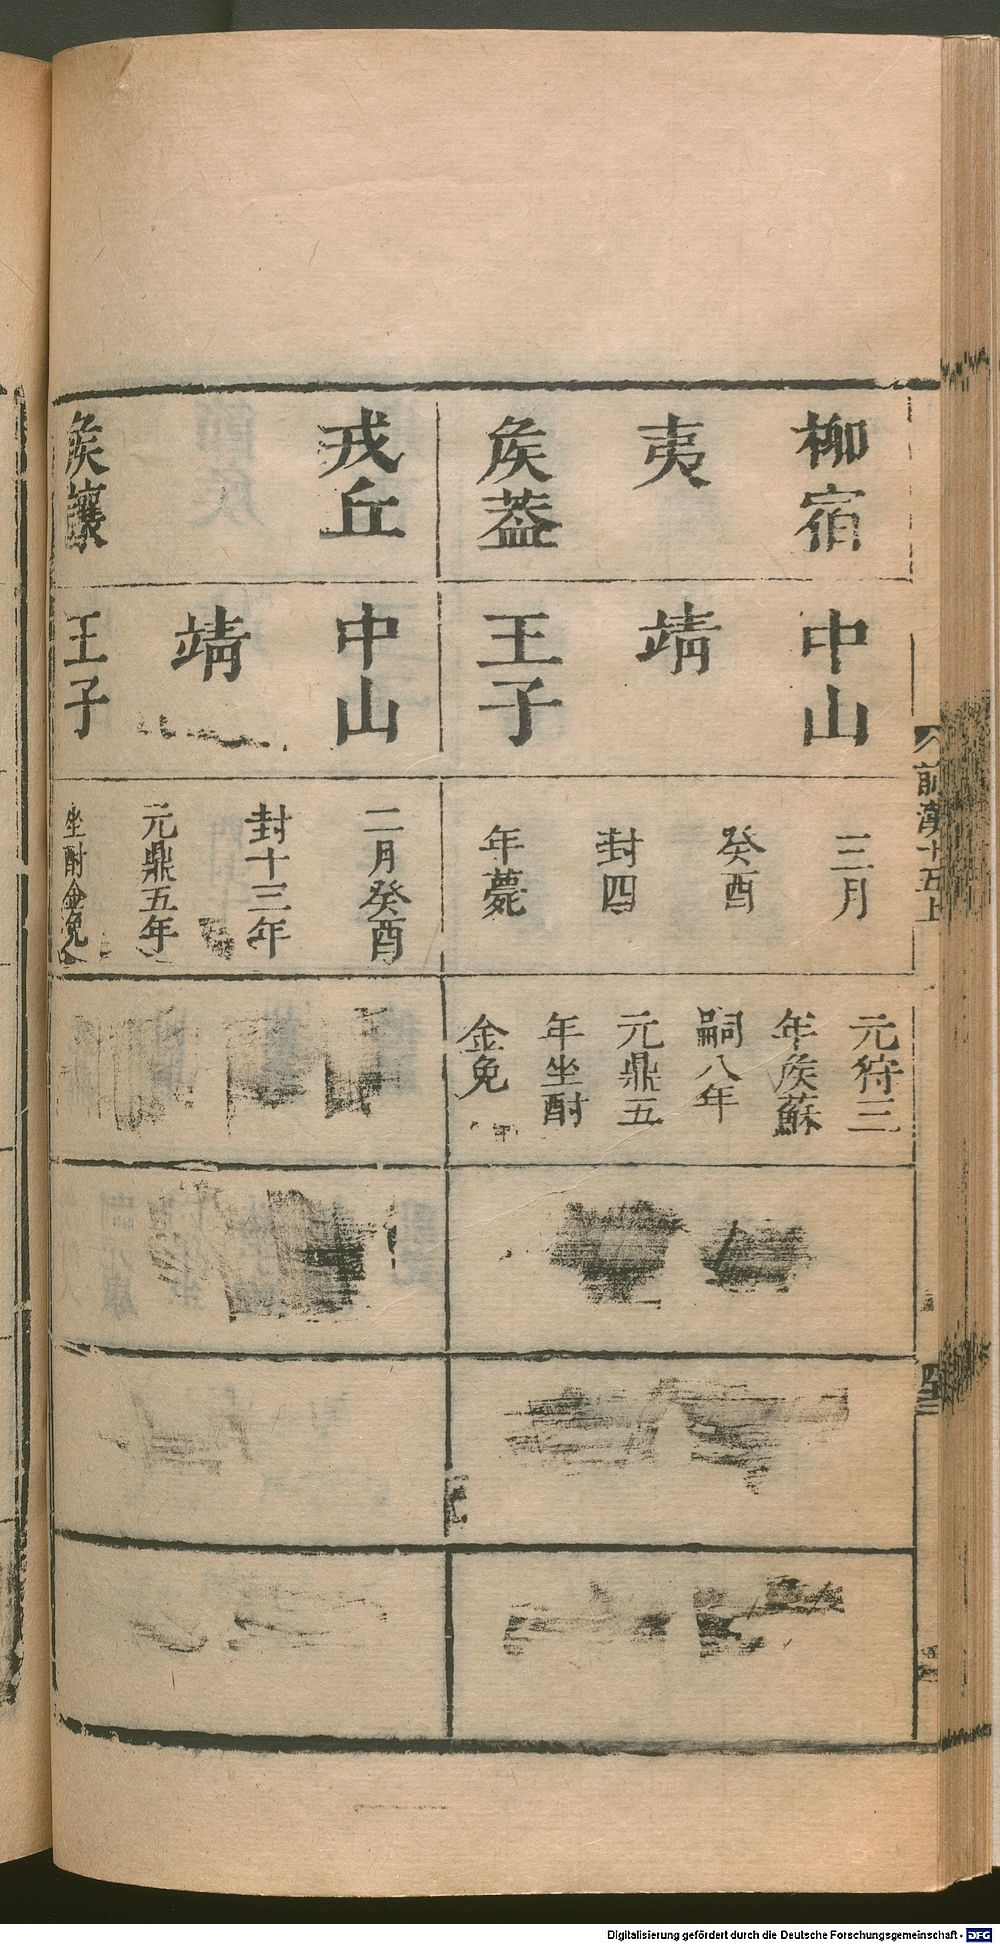 柳宿
夷
矦葢
中山
靖
王子
三月
癸酉
封四
年薨
元狩三
年矦蘇
嗣八年
元鼎五
年坐酎
金免
戎丘
矦讓
中山
靖
王子
二月癸酉
封十三年
元鼎五年
坐酎金免
前漢十五上
Digitalisierung gefördert durch die Deutsche Forschungsgemeinschaft - DFG